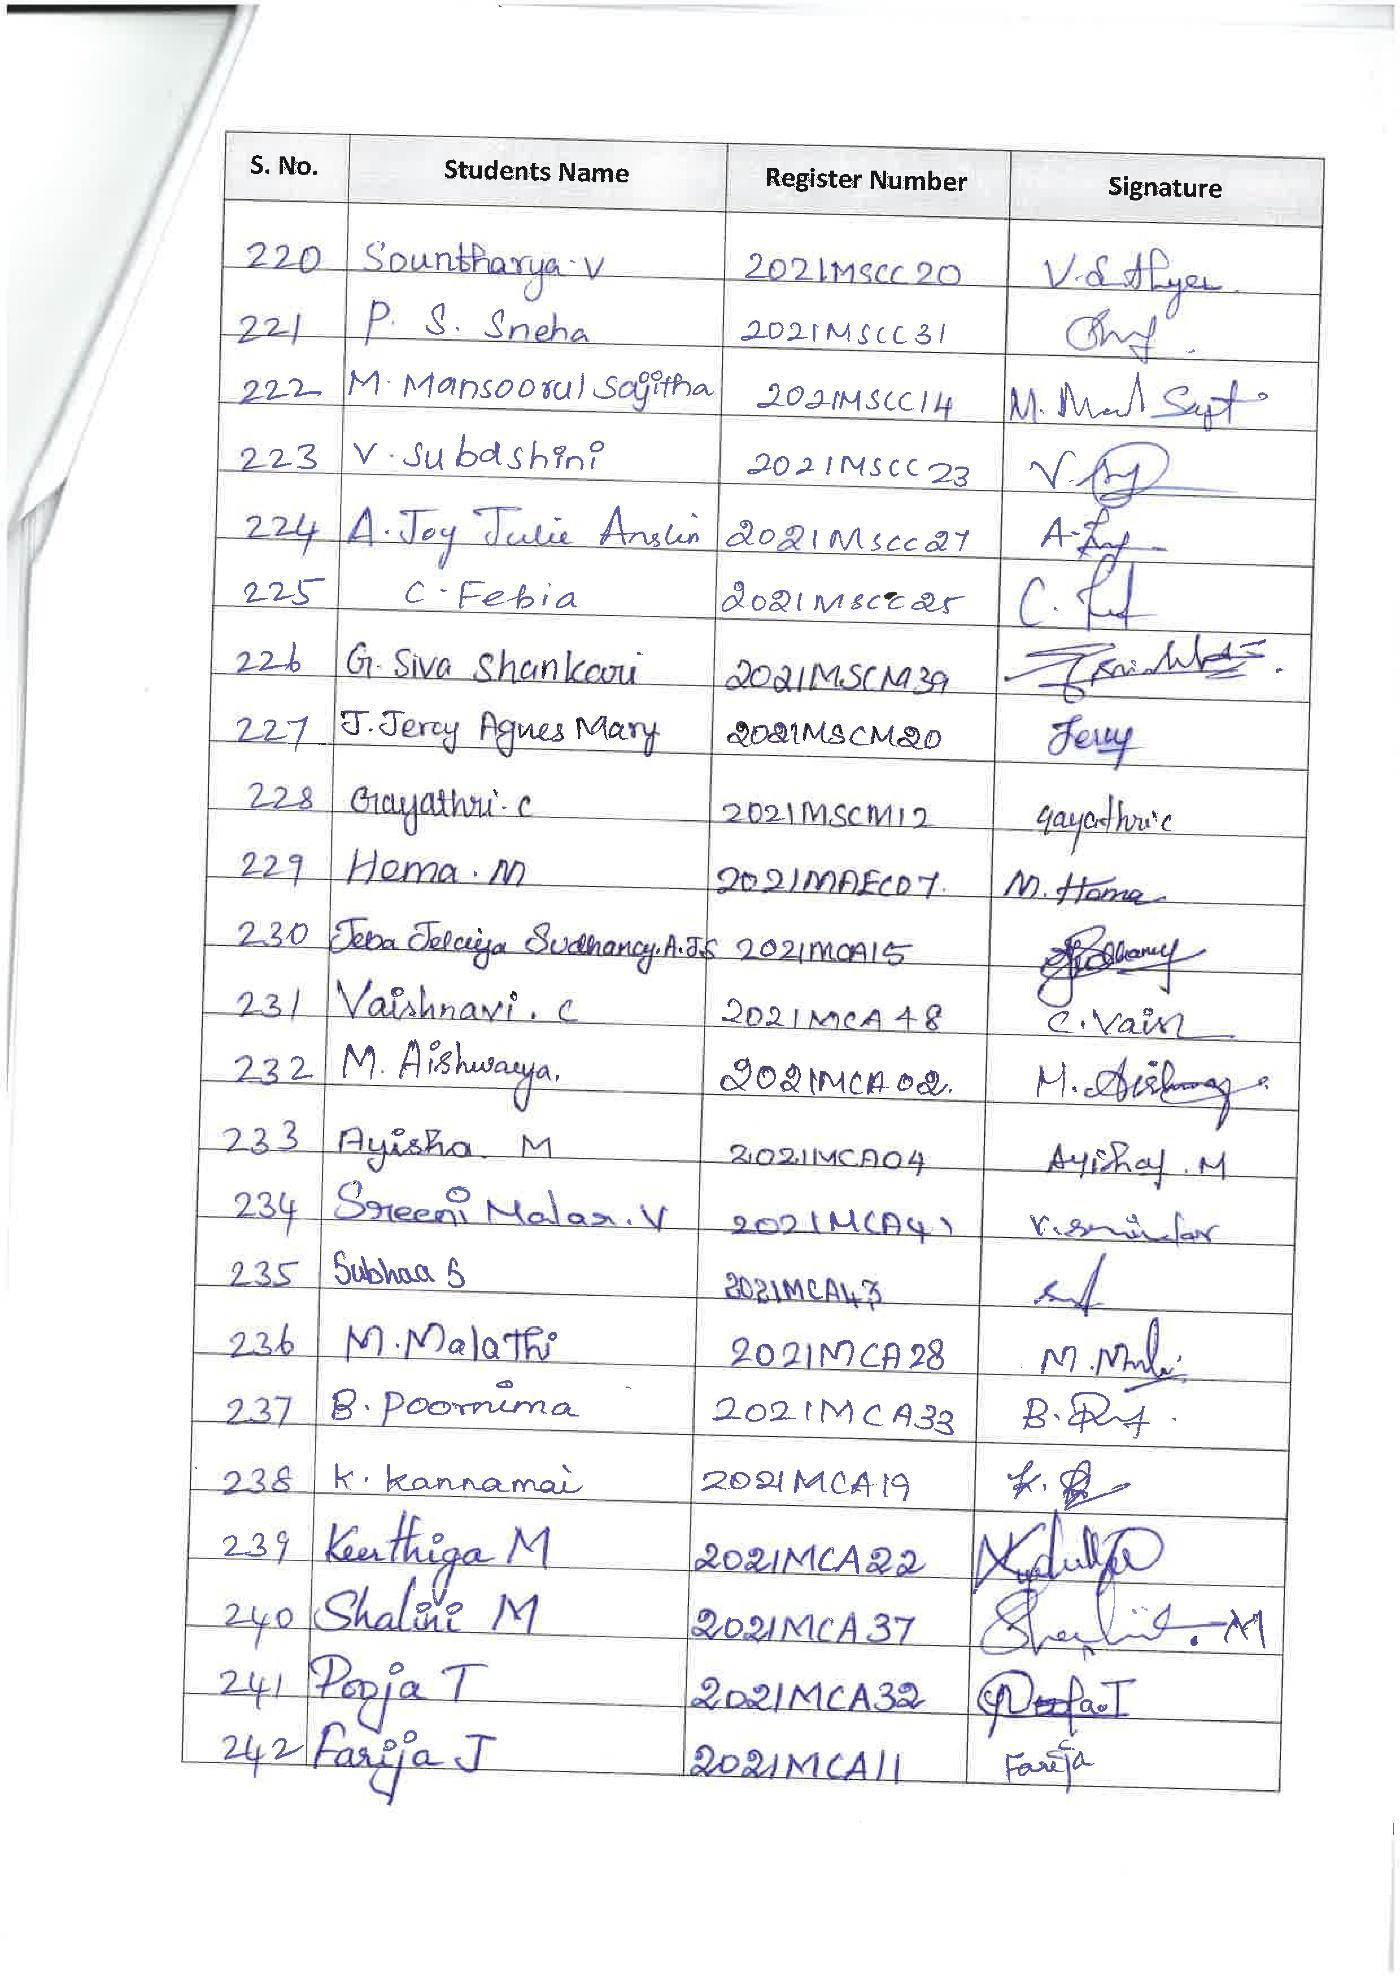 S. No. Students Name Register Number Signature
220 Sountharya. V 2021MSCC20
221 P. S. Sneha 2021MSCC31
222 M. Mansoorul Sajitha 2021MSCC14
223 V. Subashini 2021MSCC23
224 A. Joy Julie Anslin 2021MSCC27
225 C. Febia 2021MSCC25
226 G. Siva Shankari 2021MSCM39
227 J. Jercy Agnes Mary 2021MSCM20 Jercy
228 Gayathri. C 2021MSCM12 gayathri.c
229 Hema. M 2021MAEC07. M. Hema
230 Jeba Jelciya Sudhancy. A. J.S 2021MCA15
231 Vaishnavi. C 2021MCA48 C. Vaish
232 M. Aishwarya. 2021MCA02.
233 Ayisha. M 2021MCA04 Ayishaj. M
234 Sreeni Malar. V 2021MCA41
235 Subhaa S 2021MCA43
236 M. Malathi 2021MCA28
237 B. Poornima 2021MCA33
238 K. Kannamai 2021MCA19
239 Keerthiga M 2021MCA22
240 Shalini M 2021MCA37
241 Pooja T 2021MCA32
242 Farija J 2021MCA11 Farija